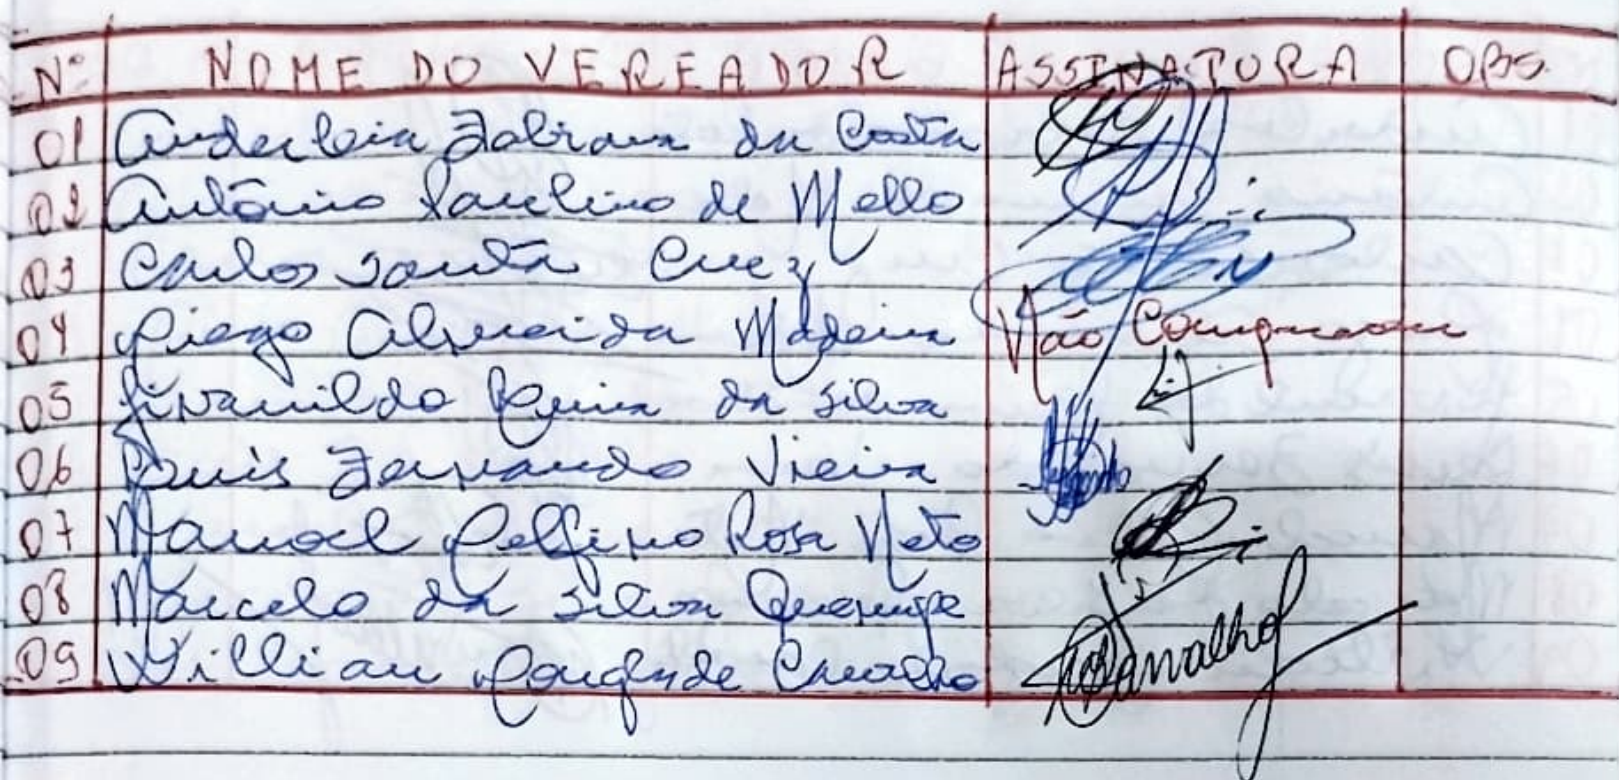 Nº NOME DO VEREADOR ASSINATURA OBS.
01 Anderleia Fabiana da Costa
02 Antônio Paulino de Mello
03 Carlos Santa Cruz
04 Diego Almeida Madeira Não Compareceu
05 da Silva
06 Luis Fernando Vieira
07 Manoel Delfino Rosa Neto
08 Marcelo da Silva
09 Willian de Carvalho Carvalho